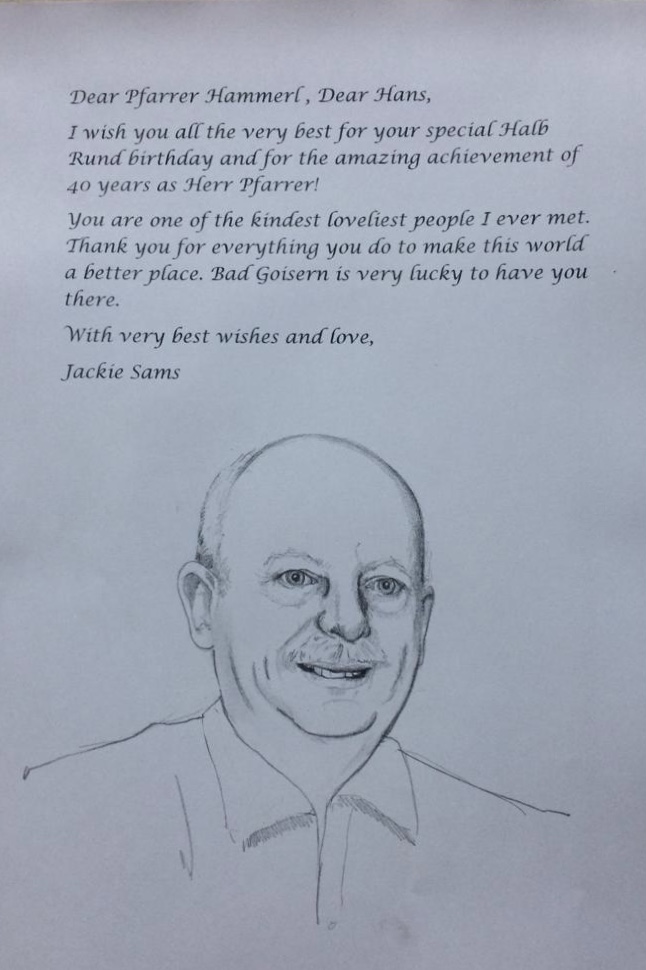 Dear Pfarrer Hammerl, Dear Hans,
I wish you all the very best for your special Halb
Rund birthday and for the amazing achievement of
40 years as Herr Pfarrer!
You are one of the kindest loveliest people I ever met.
Thank you for everything you do to make this world
a better place. Bad Goisern is very lucky to have you
there.
With very best wishes and love,
Jackie Sams